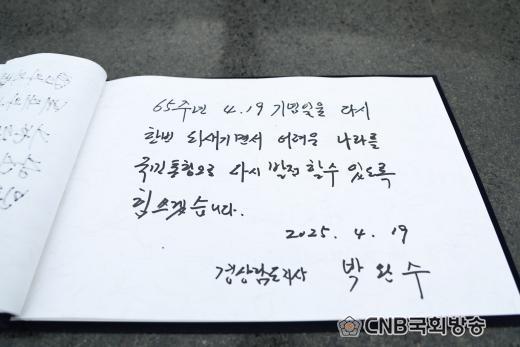 65주년 4.19 기념일을 다시
한번 되새기면서 어려운 나라를
국민통합으로 다시 발전 할수 있도록
힘쓰겠습니다.
2025. 4. 19
경상남도지사 박완수
CNB국회방송